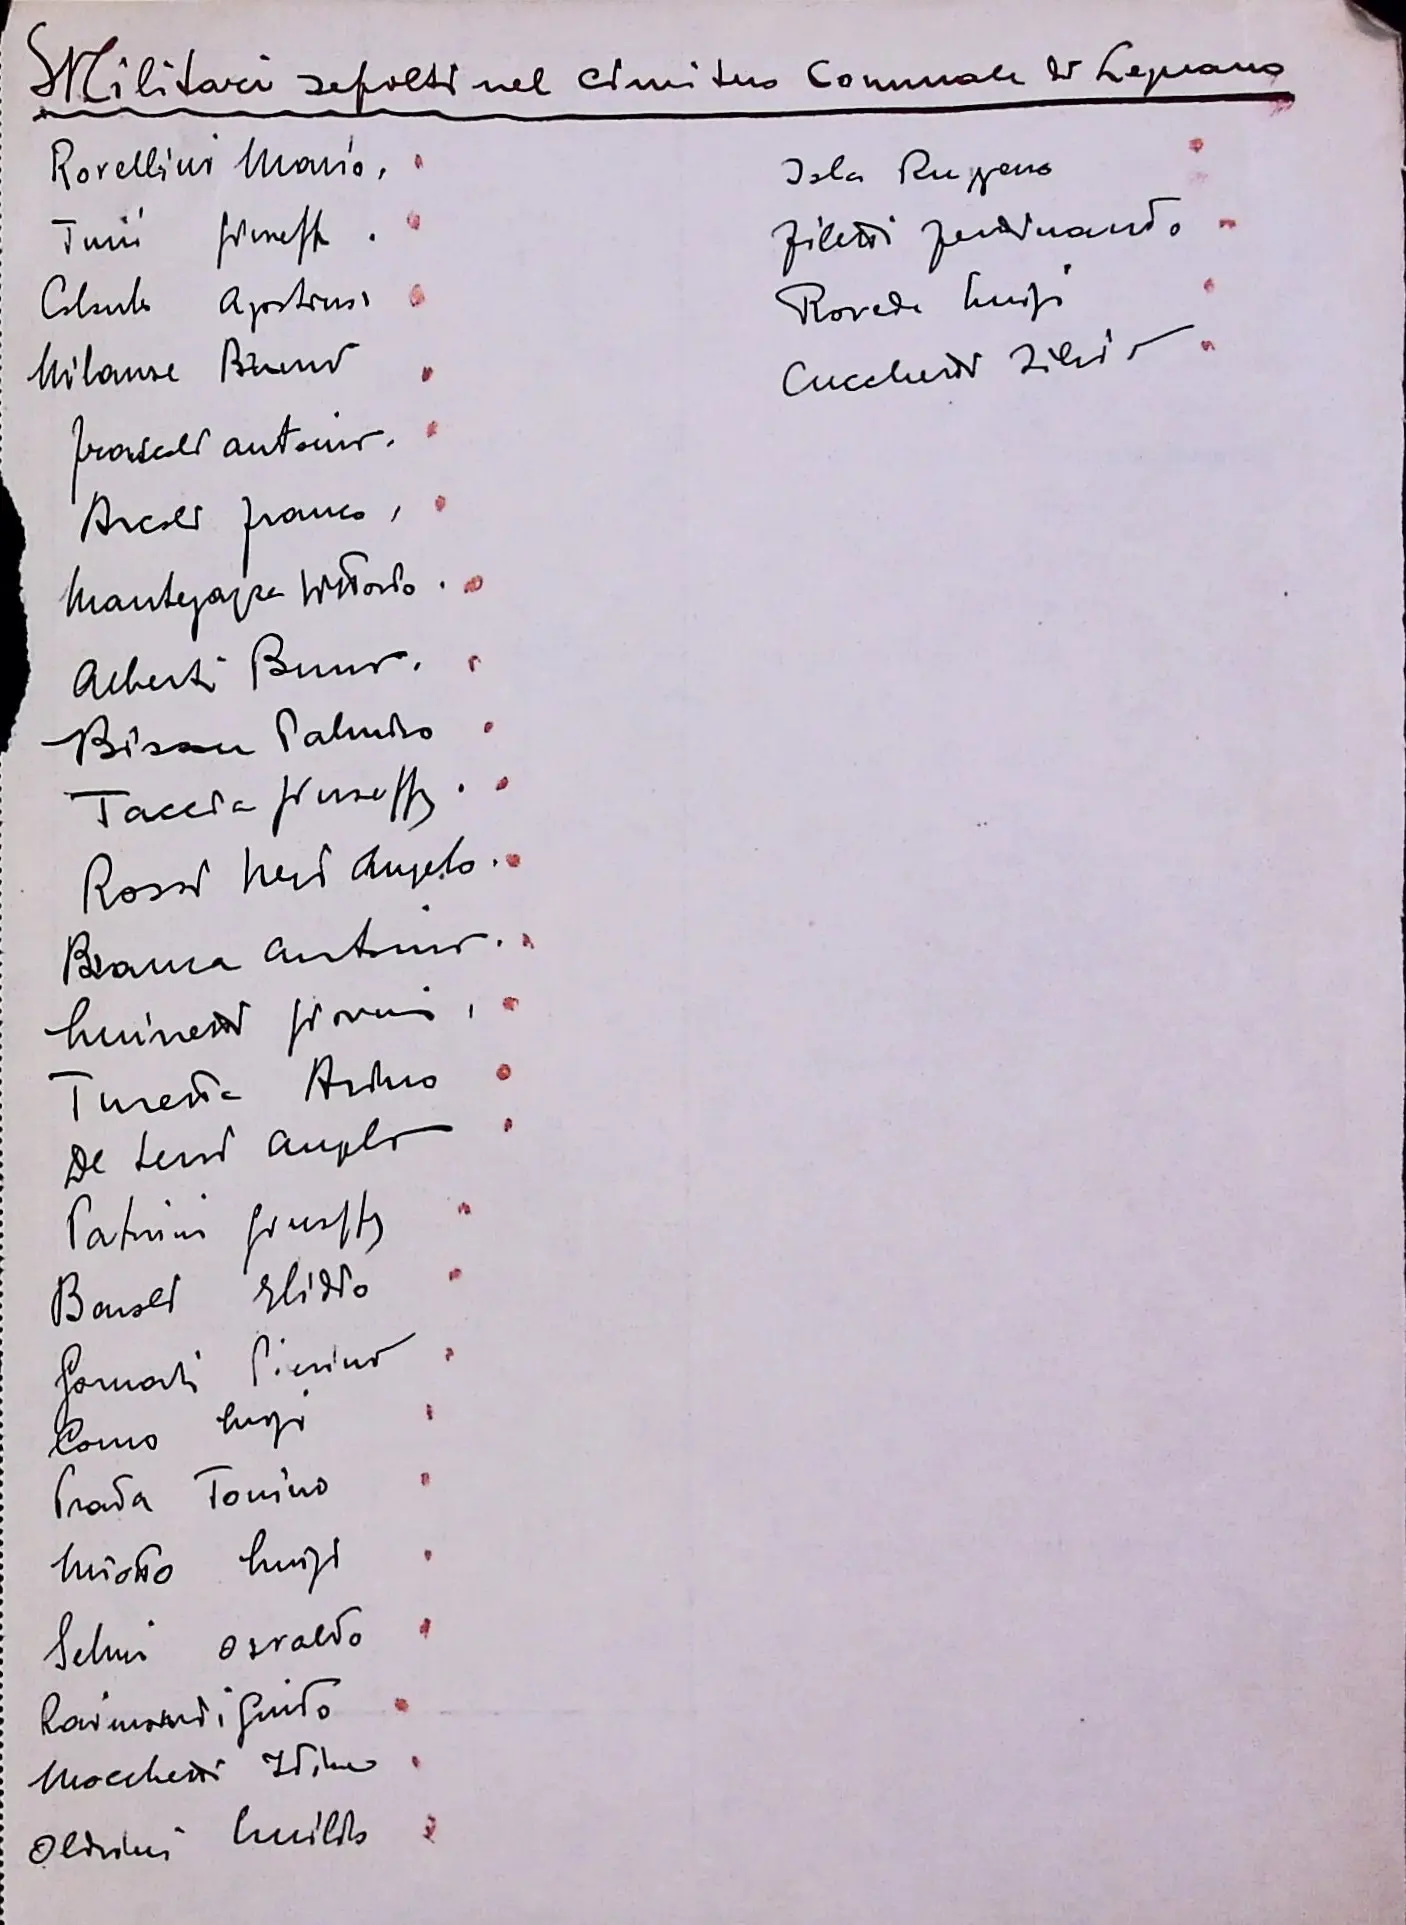 Militari sepolti nel cimitero Comunale di Legnano
Rovellini Mario,
Turri Giuseppe.
Colombo Agostino
Milanese Bruno
Frascoli Antonio.
Arcoli Franco,
Mantegazza Vittorio.
Alberti Bruno.
Bisson Palmiro
Taccia Giuseppe.
Rossi Negri Angelo.
Branca Antonio.
Luinetti Giovanni,
Turetta Arturo
De Angelo
Patrini Giuseppe
Bonoli Elidio
Gornati Pierino
Como Luigi
Prada Tonino
Miotto Luigi
Selmi Osvaldo
Raimondi Guido
Mocchetti Idimo
Oldrini
Isla Ruggero
Ziletti Ferdinando
Roveda Luigi
Cucchetti Silvio